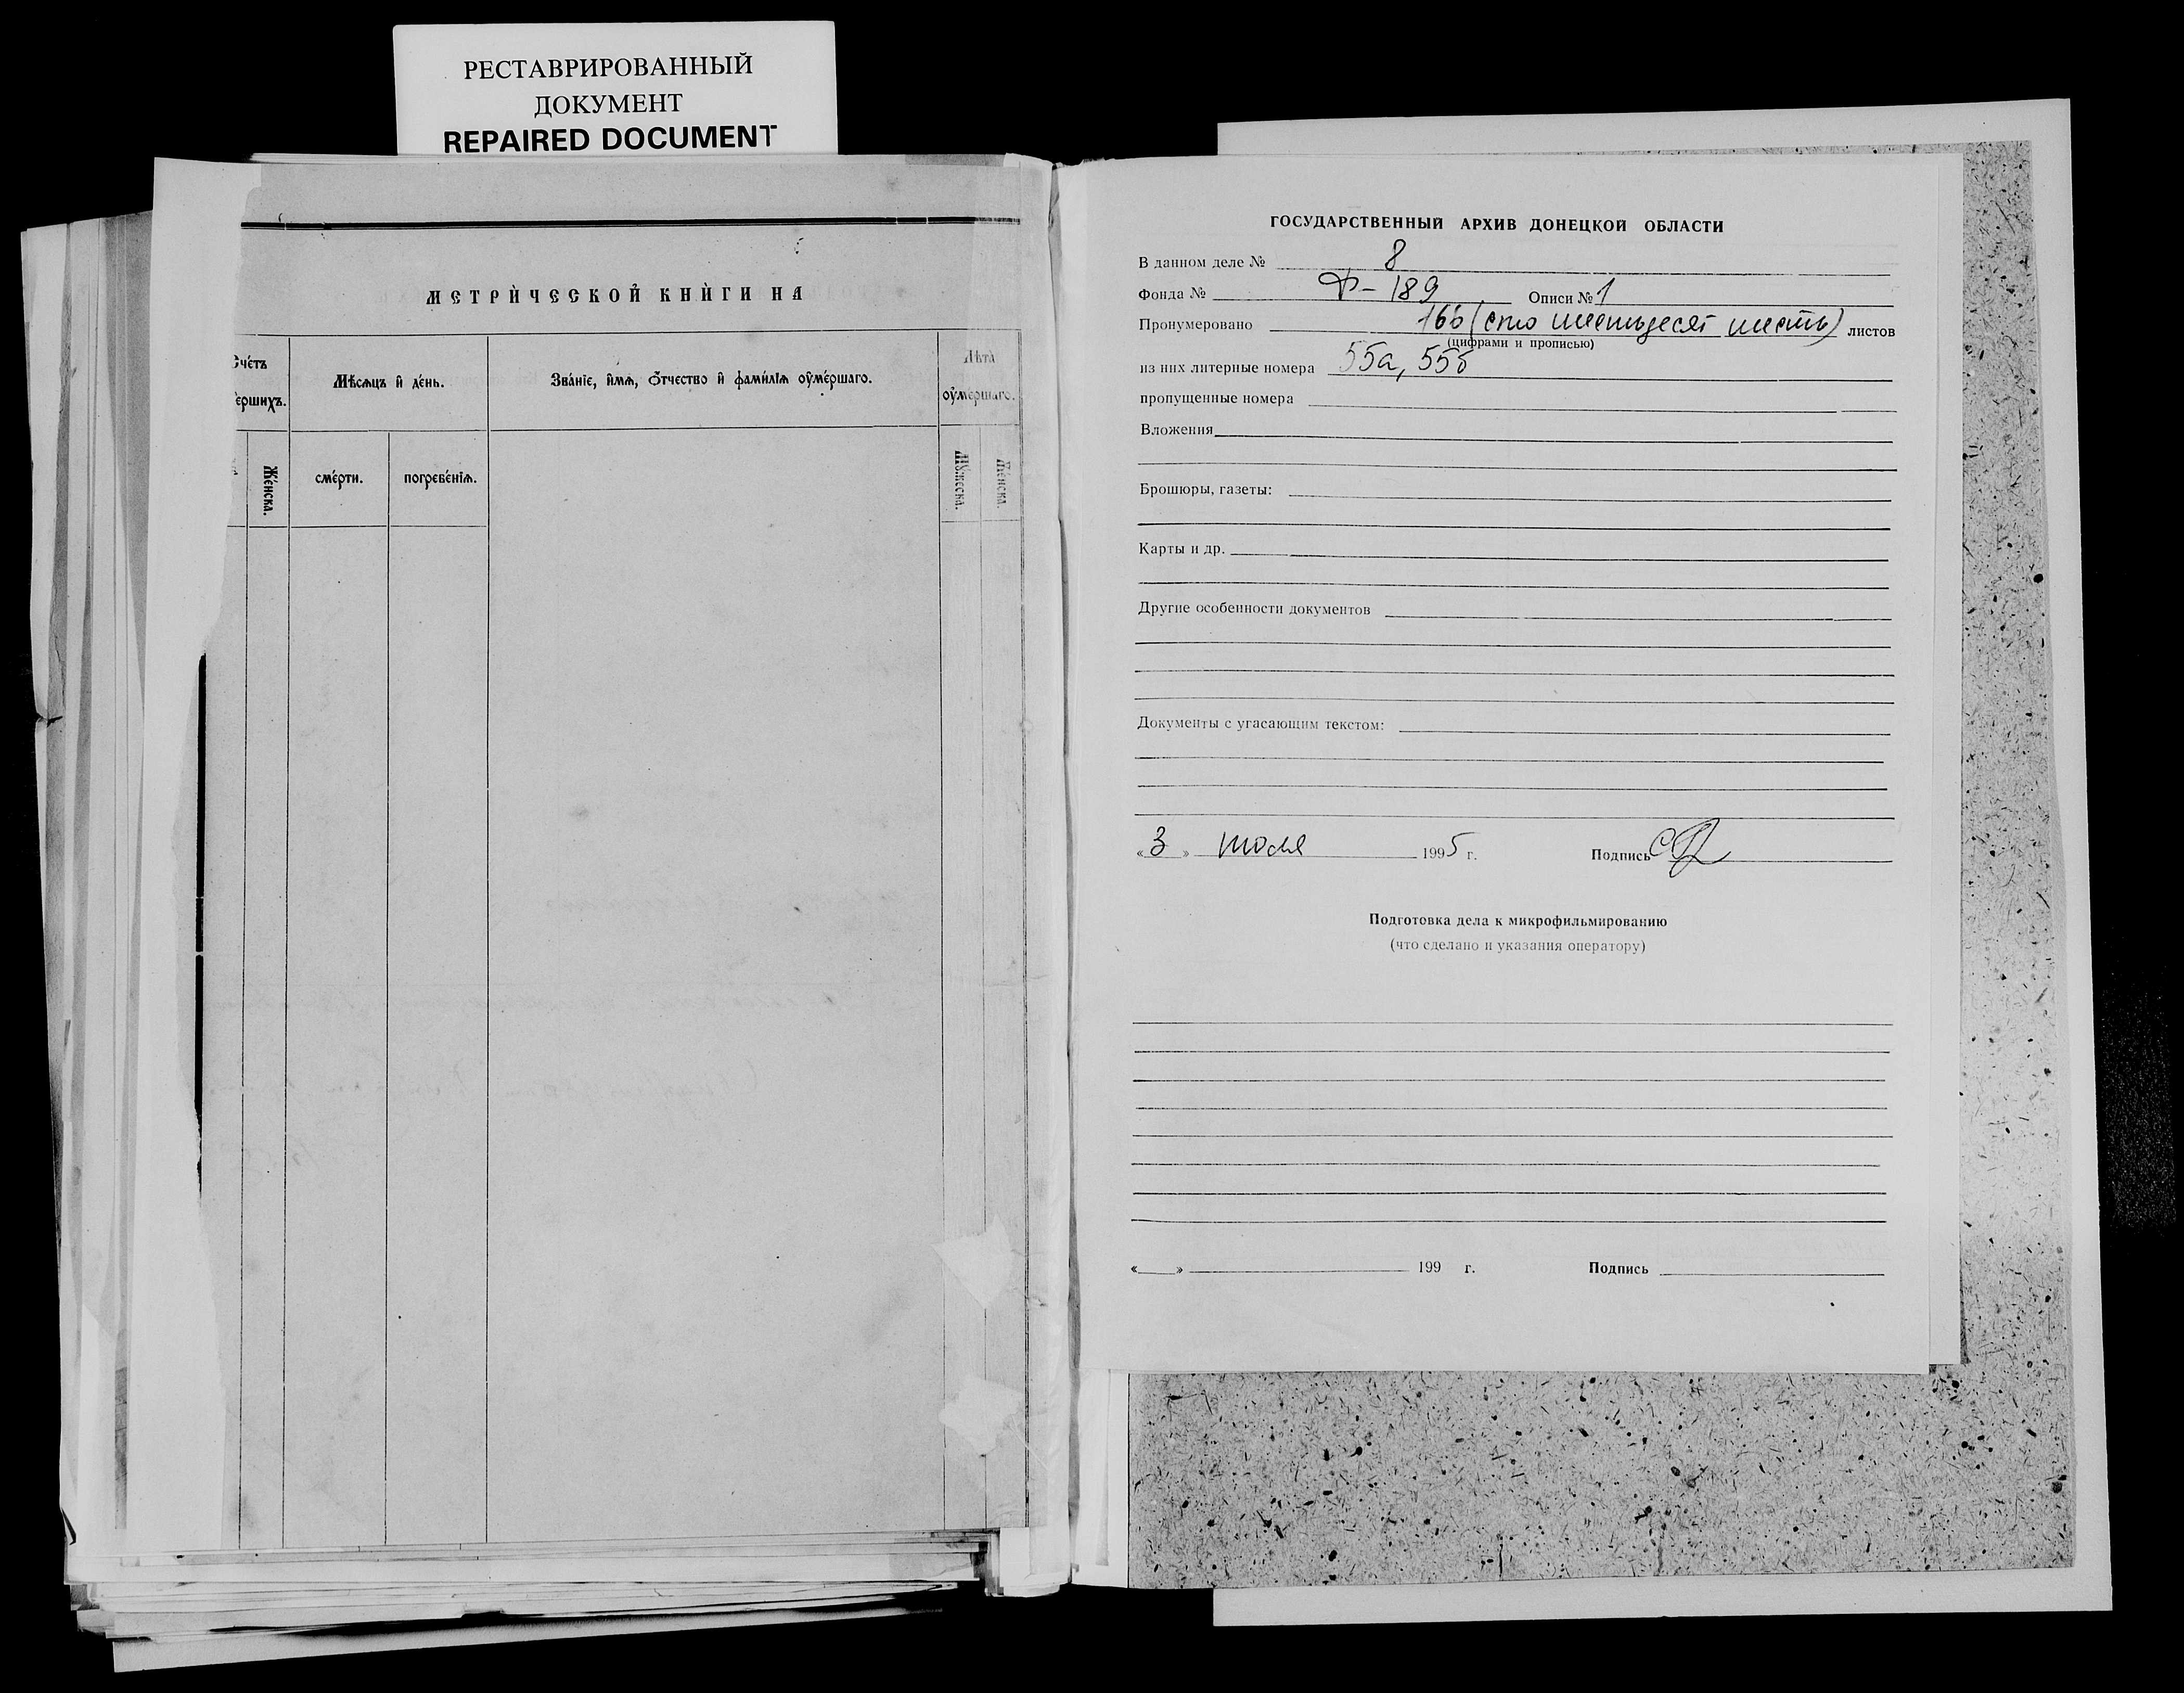 РЕСТАВРИРОВАННЫЙ
ДОКУМЕНТ
REPAIRED DOCUMENT
МЕТРИ́ЧЕСКОЙ КНИ́ГИ НА
Счéтъ
ершихъ.
Мѣ́сяцъ и҆ де́нь.
Зва́нїе, и҆́мѧ, Ѻ҆́тчество и҆ фами́лїѧ оу҆ме́ршаго.
Лѣта̀
оу҆ме́ршаго.
Же́нска.
сме́рти.
погребе́нїѧ.
Мꙋ́жеска.
Же́нска.
ГОСУДАРСТВЕННЫЙ АРХИВ ДОНЕЦКОЙ ОБЛАСТИ
В данном деле № 8
Фонда № Ф-189 Описи № 1
Пронумеровано 166 (сто шестьдесят шесть) листов
(цифрами и прописью)
из них литерные номера 55а, 55б
пропущенные номера
Вложения
Брошюры, газеты:
Карты и др.
Другие особенности документов
Документы с угасающим текстом:
«3» июля 1995 г. Подпись
Подготовка дела к микрофильмированию
(что сделано и указания оператору)
«___» 199 г. Подпись